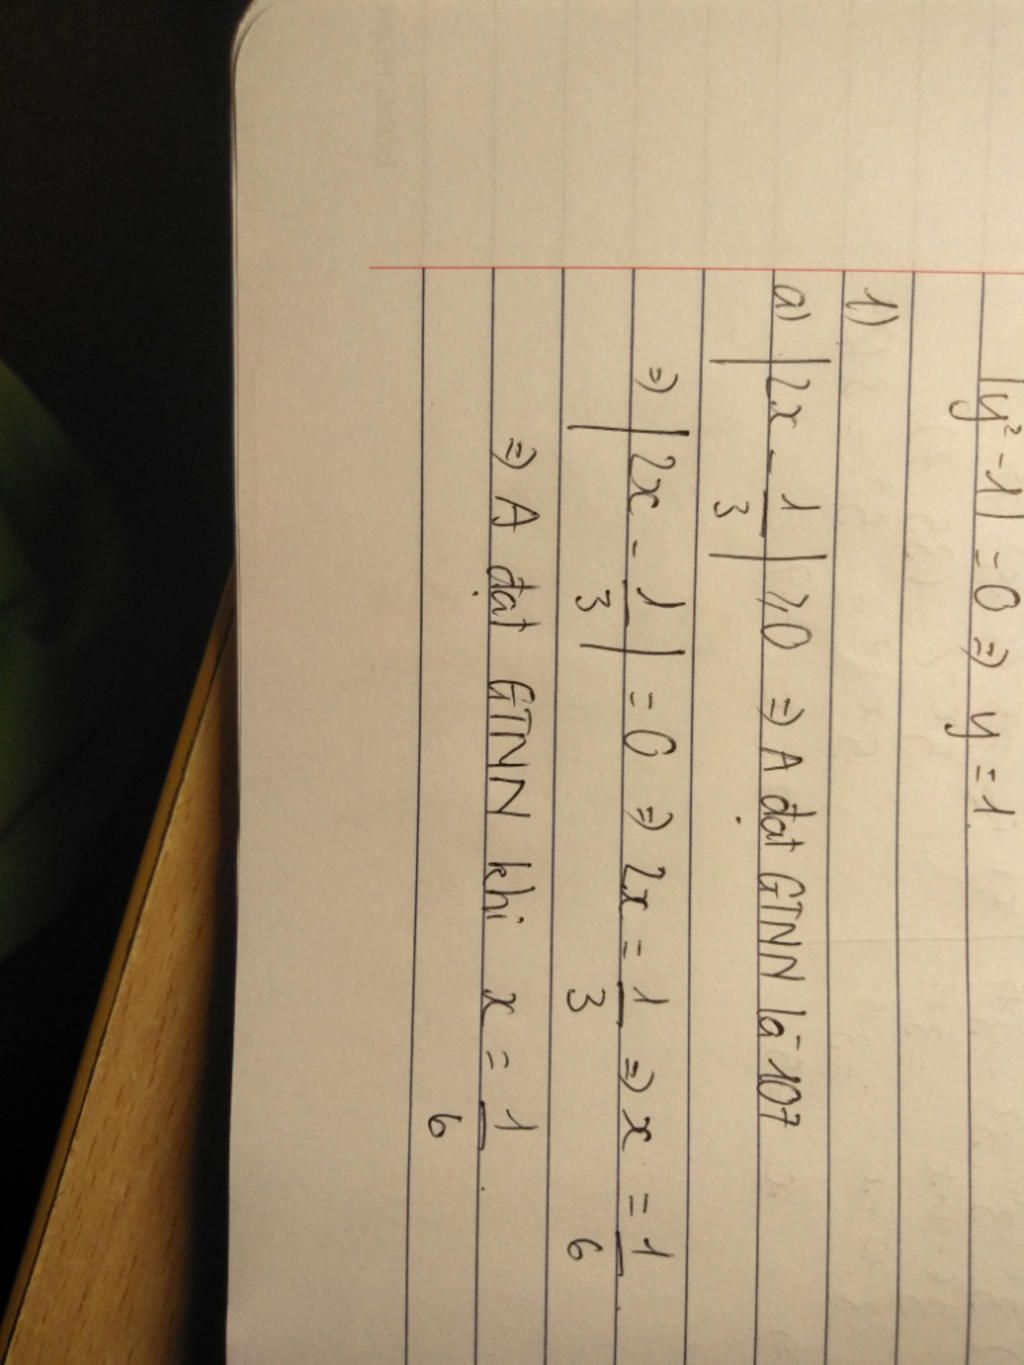 |y² - 1| = 0 => y = 1
1)
a) |2x - 1/3| ≥ 0 => A đạt GTNN là 107
=> |2x - 1/3| = 0 => 2x = 1/3 => x = 1/6.
=> A đạt GTNN khi x = 1/6.